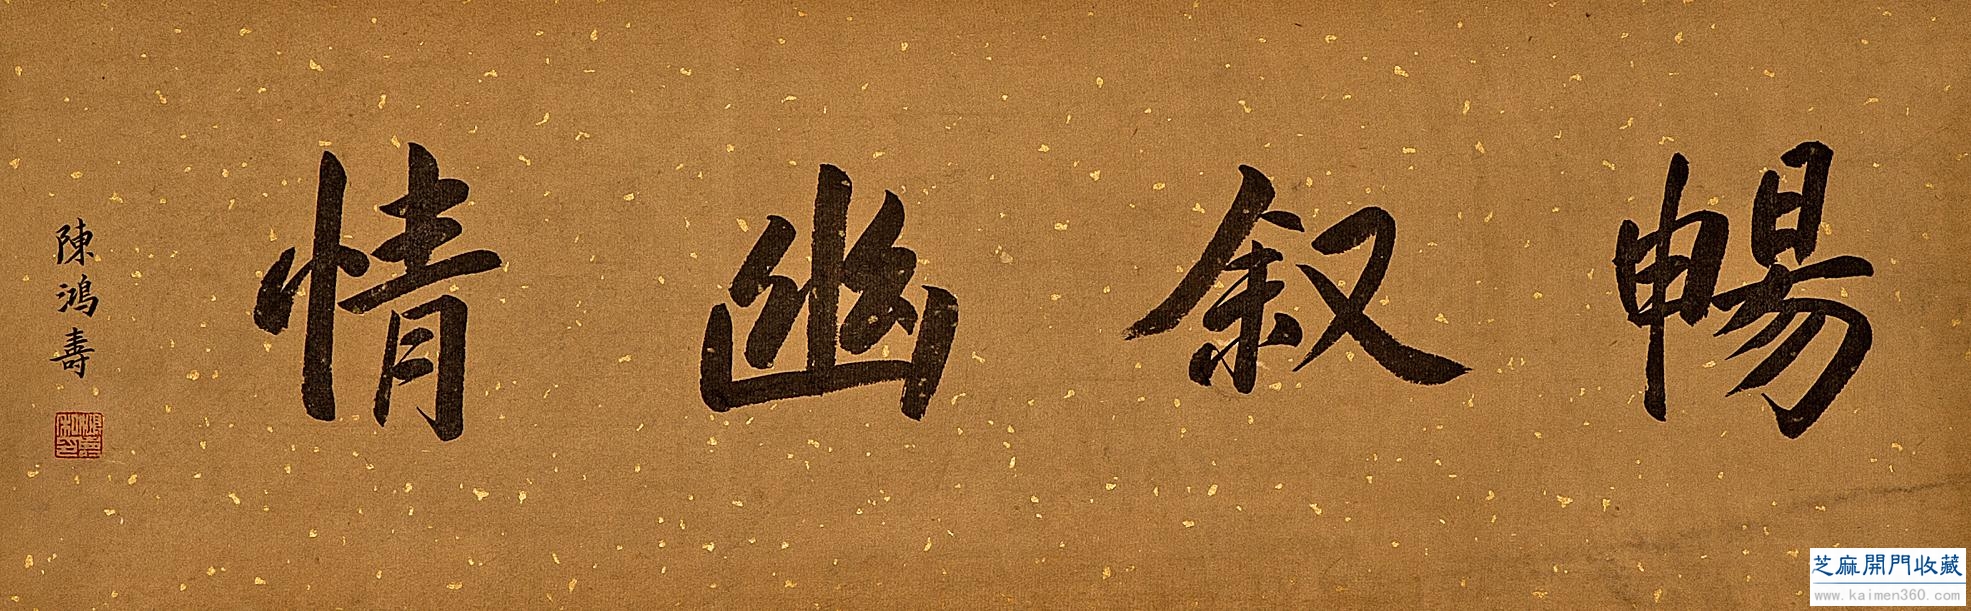 暢叙幽情
陳鴻壽
芝麻開門收藏
www.kaimen360.com